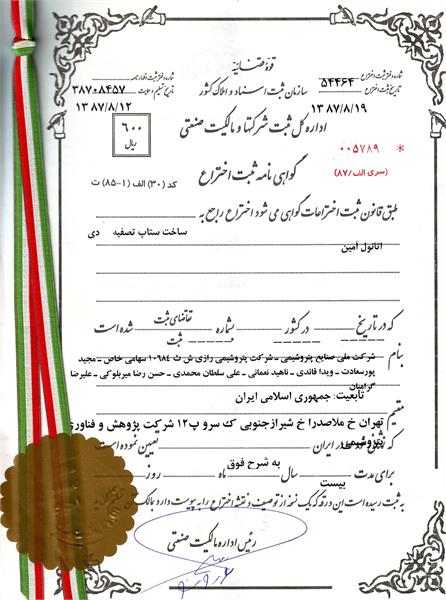 قوه قضائیه
سازمان ثبت اسناد و املاک کشور
شماره دفتر ثبت اختراع ۵۴۴۶۴
تاریخ ثبت اختراع ۱۳۸۷/۸/۱۹
شماره دفتر ثبت اظهارنامه ۳۸۷۰۸۴۵۷
تاریخ تسلیم ۱۳۸۷/۸/۱۲
اداره کل ثبت شرکتها و مالکیت صنعتی
۶۰۰
ریال
* ۰۰۵۷۸۹
(سری الف/۸۷)
گواهی نامه ثبت اختراع
کد (۳۰) الف (۱-۸۵) ت
طبق قانون ثبت اختراعات گواهی می شود اختراع راجع به
ساخت ستاپ تصفیه دی
اتانول آمین
که در تاریخ -- در کشور -- و شماره -- تقاضای ثبت شده است
ثبت
بنام
شرکت ملی صنایع پتروشیمی ـ شرکت پتروشیمی رازی ش ث ۱۰۹۸۴ سهامی خاص ـ مجید
پورسعادت ـ ویدا قائدی ـ ناهید نعمانی ـ علی سلطان محمدی ـ حسن رضا میربلوکی ـ علیرضا
گرامیان
تابعیت: جمهوری اسلامی ایران
مقیم
تهران خ ملاصدرا خ شیراز جنوبی ک سرو پ۱۲ شرکت پژوهش و فناوری
پتروشیمی
که در ایران تعیین نموده است
برای مدت بیست سال -- ماه -- روز به شرح فوق
به ثبت رسیده است این ورقه که یک نسخه از توصیف و نقشه اختراع را به پیوست دارد
رئیس اداره مالکیت صنعتی